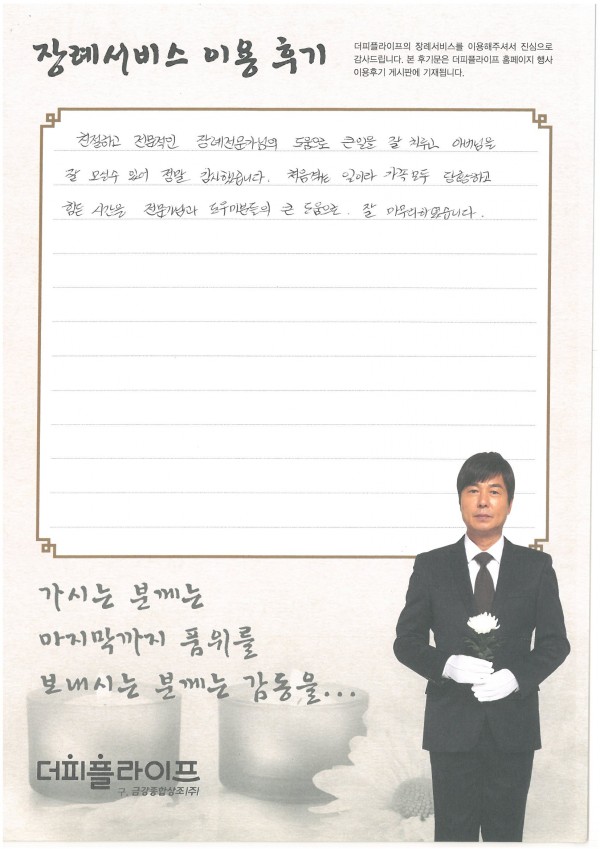 장례서비스 이용 후기
더피플라이프의 장례서비스를 이용해주셔서 진심으로
감사드립니다. 본 후기문은 더피플라이프 홈페이지 행사
이용후기 게시판에 기재됩니다.
친절하고 전문적인 장례전문가님의 도움으로 큰일을 잘 치루고 아버님을
잘 모실수 있어 정말 감사했습니다. 처음겪는 일이라 가족모두 당황하고
힘든 시간을 전문가님과 도우미분들의 큰 도움으로. 잘 마무리하였습니다.
가시는 분께는
마지막까지 품위를
보내시는 분께는 감동을...
더피플라이프
구. 금강종합상조(주)